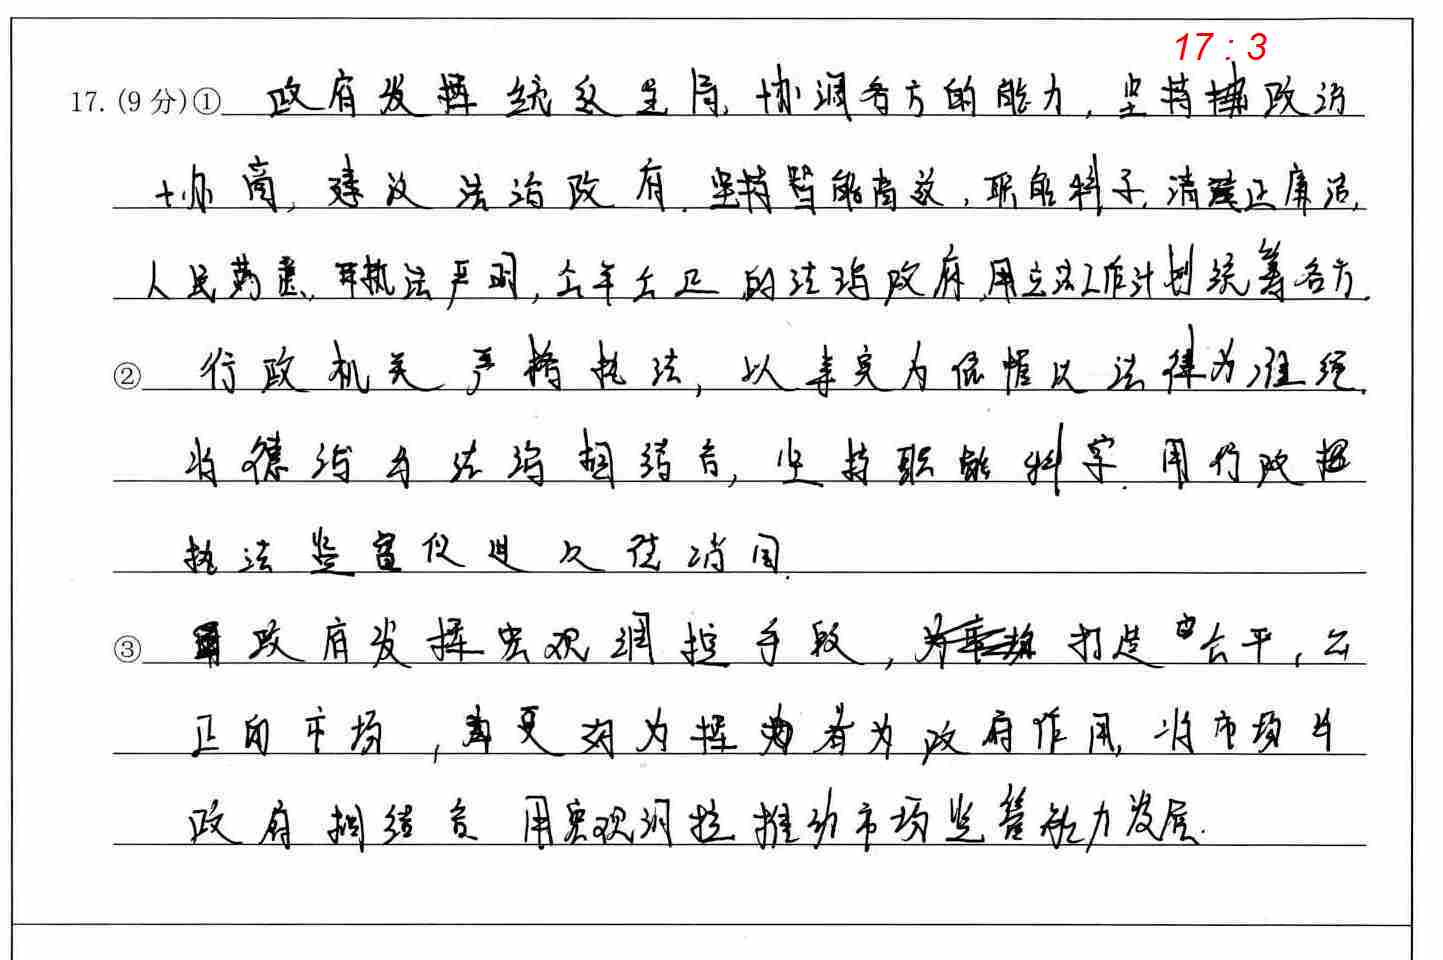 17 : 3
17.(9分)① 政府发挥统筹全局,协调各方的能力,坚持政治
协商,建设法治政府.坚持智能高效,职能科学,清廉正廉洁,
人民满意,执法严明,公平公正的法治政府,用立法工作计划统筹各方.
② 行政机关严格执法,以事实为依据以法律为准绳.
将德治与法治相结合,坚持职能科学.用行政
执法监督促进父债消困.
③ 政府发挥宏观调控手段, 打造 公平,公
正的市场, 更好为挥 者为政府作用,将市场与
政府相结合 用宏观调控推动市场监管能力发展.